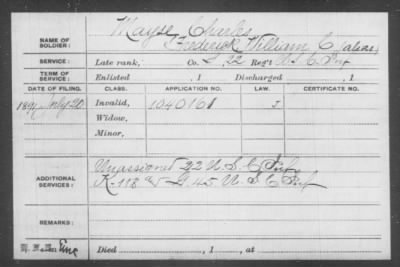 NAME OF SOLDIER: Mayse, Charles
Frederick, William C (alias)
SERVICE: Late rank, Co. G, 22 Reg't U S C Inf
TERM OF SERVICE: Enlisted , 1 Discharged , 1
DATE OF FILING. CLASS. APPLICATION NO. LAW. CERTIFICATE NO.
189 July 20 Invalid, 1040161 J
Widow,
Minor,
ADDITIONAL SERVICES: Unassigned 22 U. S. C. Inf.
K-118 & G. 45 U S C Inf
REMARKS:
Died , 1 , at